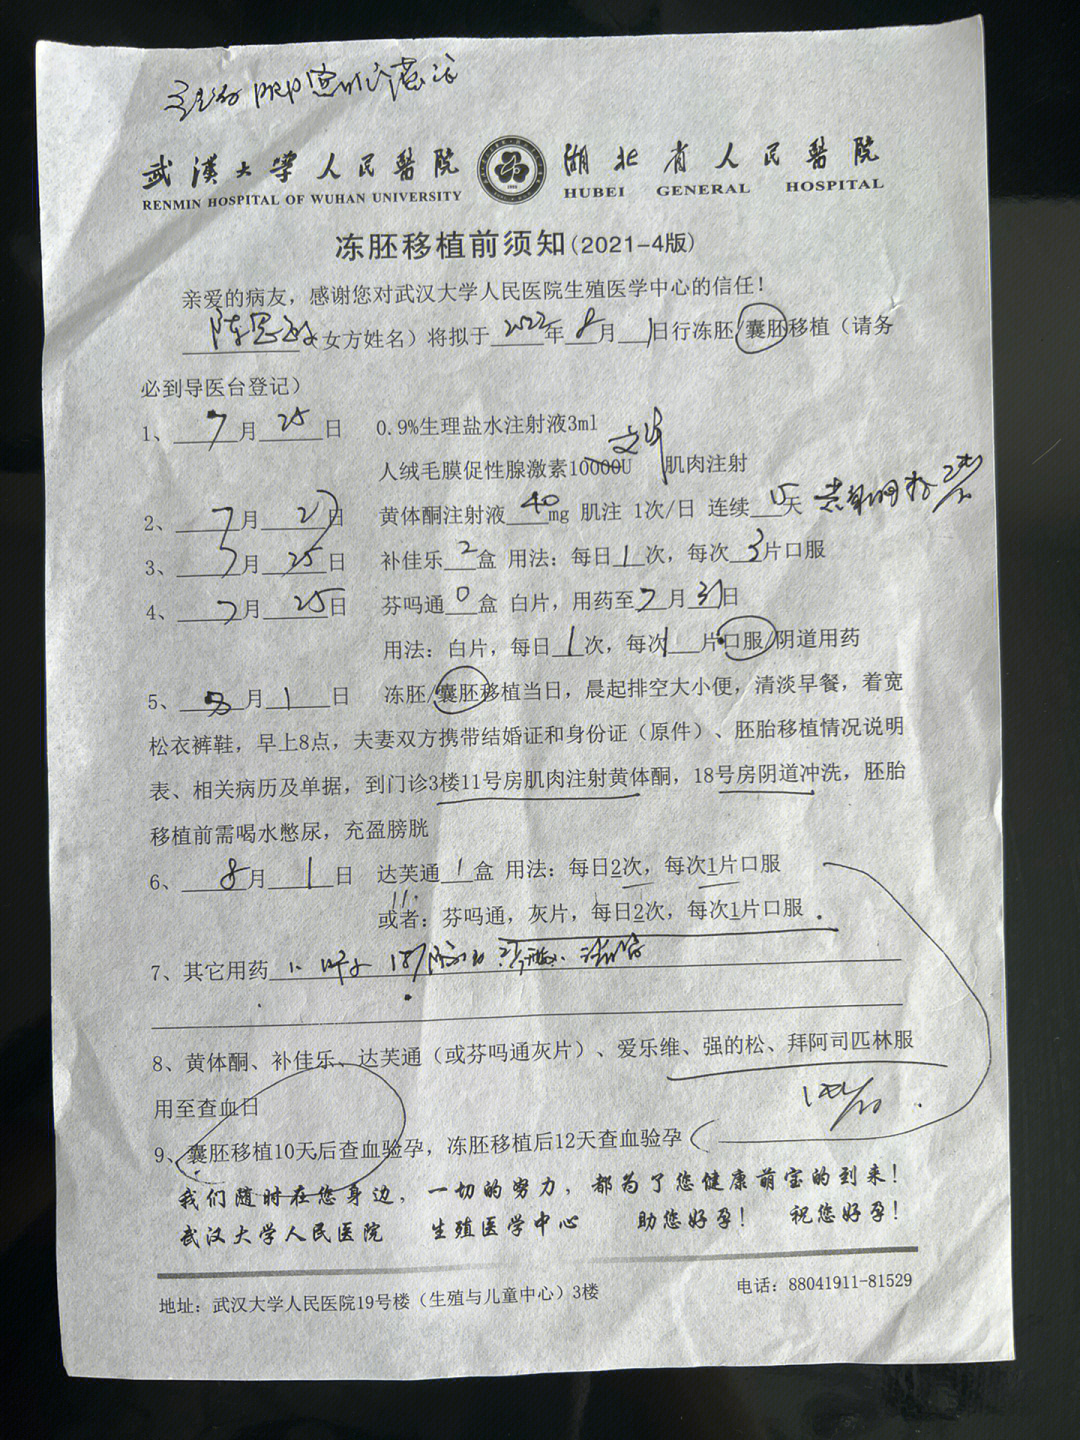 武漢大學人民醫院 湖北省人民醫院
RENMIN HOSPITAL OF WUHAN UNIVERSITY HUBEI GENERAL HOSPITAL
冻胚移植前须知(2021-4版)
亲爱的病友，感谢您对武汉大学人民医院生殖医学中心的信任！
(女方姓名）将拟于2022年8月1日行冻胚/囊胚移植（请务
必到导医台登记）
1、7月25日 0.9%生理盐水注射液3ml
人绒毛膜促性腺激素10000U 肌肉注射
2、7月27日 黄体酮注射液40mg 肌注 1次/日 连续15天
3、7月25日 补佳乐2盒 用法：每日1次，每次3片口服
4、7月25日 芬吗通0盒 白片，用药至7月31日
用法：白片，每日1次，每次1片口服/阴道用药
5、8月1日 冻胚/囊胚移植当日，晨起排空大小便，清淡早餐，着宽
松衣裤鞋，早上8点，夫妻双方携带结婚证和身份证（原件）、胚胎移植情况说明
表、相关病历及单据，到门诊3楼11号房肌肉注射黄体酮，18号房阴道冲洗，胚胎
移植前需喝水憋尿，充盈膀胱
6、8月1日 达芙通1盒 用法：每日2次，每次1片口服
或者：芬吗通，灰片，每日2次，每次1片口服
7、其它用药
8、黄体酮、补佳乐、达芙通（或芬吗通灰片）、爱乐维、强的松、拜阿司匹林服
用至查血日
9、囊胚移植10天后查血验孕，冻胚移植后12天查血验孕
我们随时在您身边，一切的努力，都为了您健康萌宝的到来！
武汉大学人民医院 生殖医学中心 助您好孕！ 祝您好孕！
地址：武汉大学人民医院19号楼（生殖与儿童中心）3楼 电话：88041911-81529